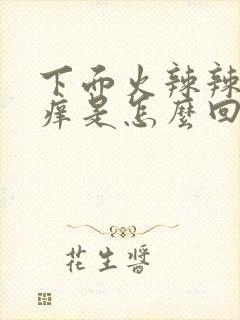 下而火辣辣
痒是怎麼回
花生醬